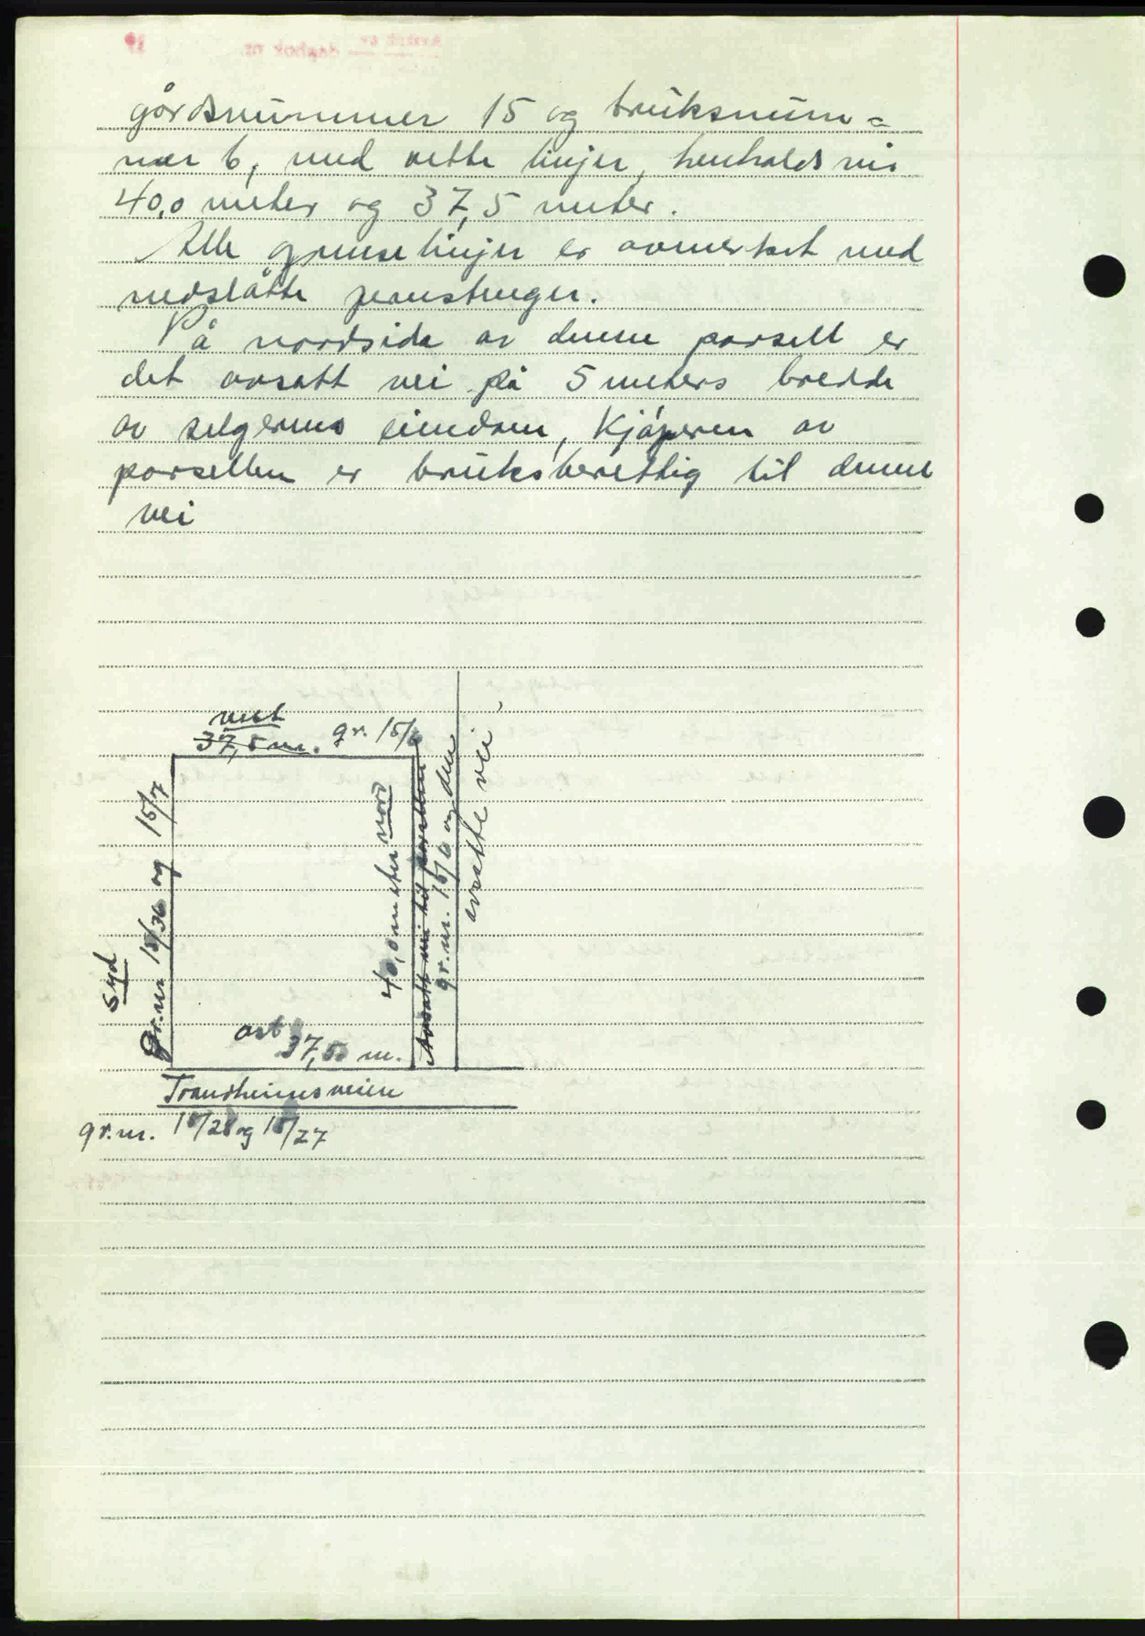 gårdsnummer 15 og bruksnum=
mer 6, med rette linjer, henholdsvis
40,0 meter og 37,5 meter.
Alle grense linjer er avmerket med
nedslåtte jernstenger.
På nordside av denne parsell er
det avsatt vei på 5 meters bredde
av selgerens eiendom, Kjøperen av
parsellen er bruksberettig til denne
vei
vest
37,5 m. gr. 15/6
syd
gr. nr 15/36 og 15/7
40,0 meter nord
Avsatt vei til parsellen
gr. nr. 15/6 og den
avsatte vei
øst
37,50 m.
Trondheimsveien
gr. nr. 15/28 og 15/27